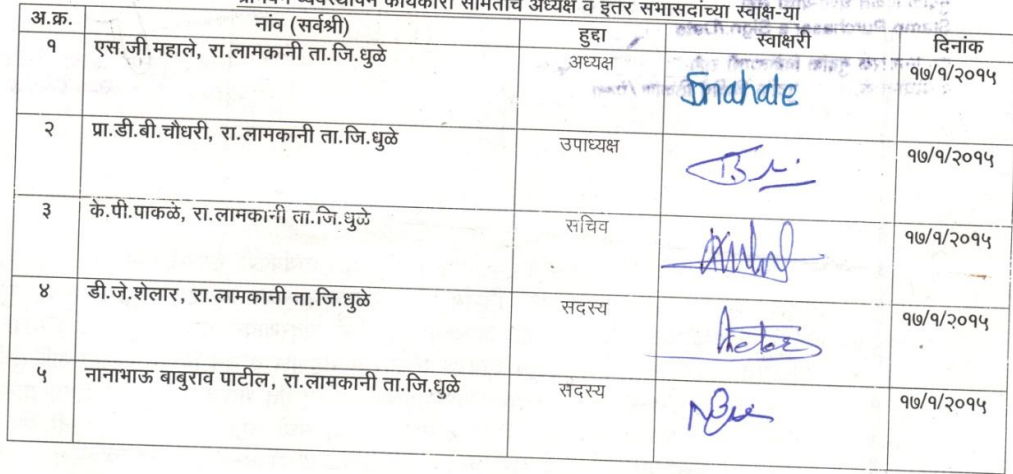 व्यवस्थापन कार्यकारी समितीचे अध्यक्ष व इतर सभासदांच्या स्वाक्ष-या
अ.क्र. नांव (सर्वश्री) हुद्दा स्वाक्षरी दिनांक
१ एस.जी.महाले, रा.लामकानी ता.जि.धुळे अध्यक्ष Smahale १७/१/२०१५
२ प्रा.डी.बी.चौधरी, रा.लामकानी ता.जि.धुळे उपाध्यक्ष १७/१/२०१५
३ के.पी.पाकळे, रा.लामकानी ता.जि.धुळे सचिव १७/१/२०१५
४ डी.जे.शेलार, रा.लामकानी ता.जि.धुळे सदस्य १७/१/२०१५
५ नानाभाऊ बाबुराव पाटील, रा.लामकानी ता.जि.धुळे सदस्य १७/१/२०१५